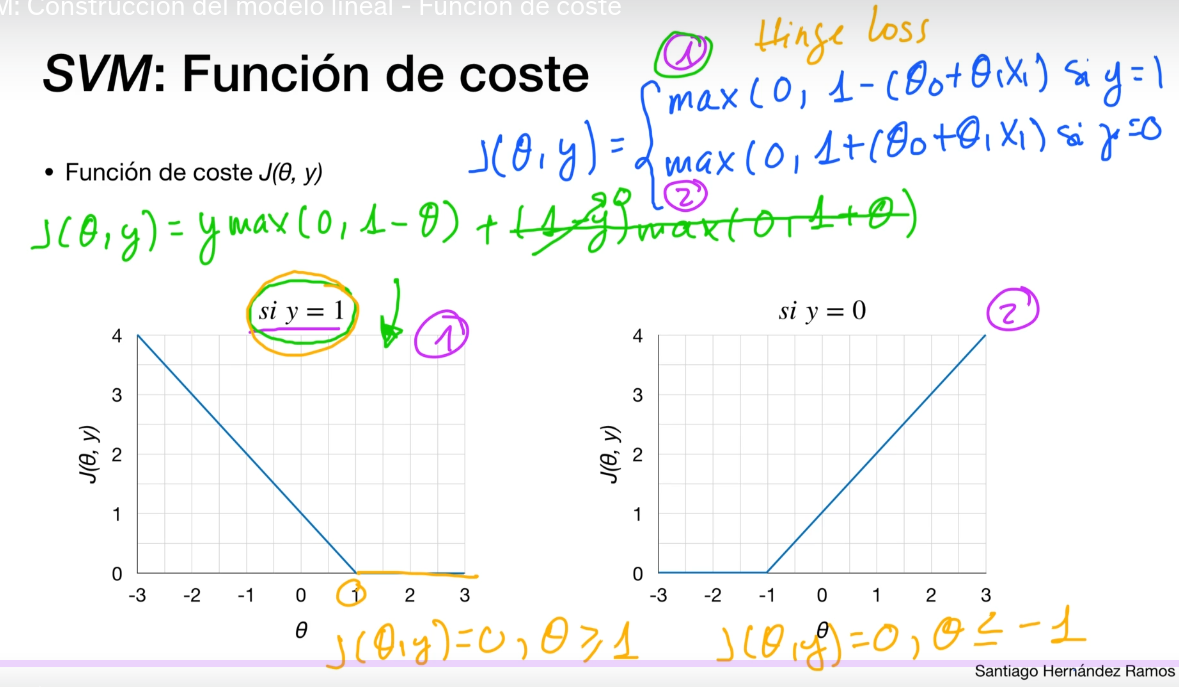 M: Construcción del modelo lineal - Función de coste
SVM: Función de coste
① Hinge loss
J(θ, y) = { max(0, 1-(θ₀+θ₁x₁) si y=1
max(0, 1+(θ₀+θ₁x₁) si y=0
②
• Función de coste J(θ, y)
J(θ, y) = y max(0, 1-θ) + (1-y) max(0, 1+θ)
si y = 1
①
4
3
2
1
0
J(θ, y)
-3 -2 -1 0 1 2 3
θ
J(θ, y)=0, θ ≥ 1
si y = 0
②
4
3
2
1
0
J(θ, y)
-3 -2 -1 0 1 2 3
θ
J(θ, y)=0, θ ≤ -1
Santiago Hernández Ramos